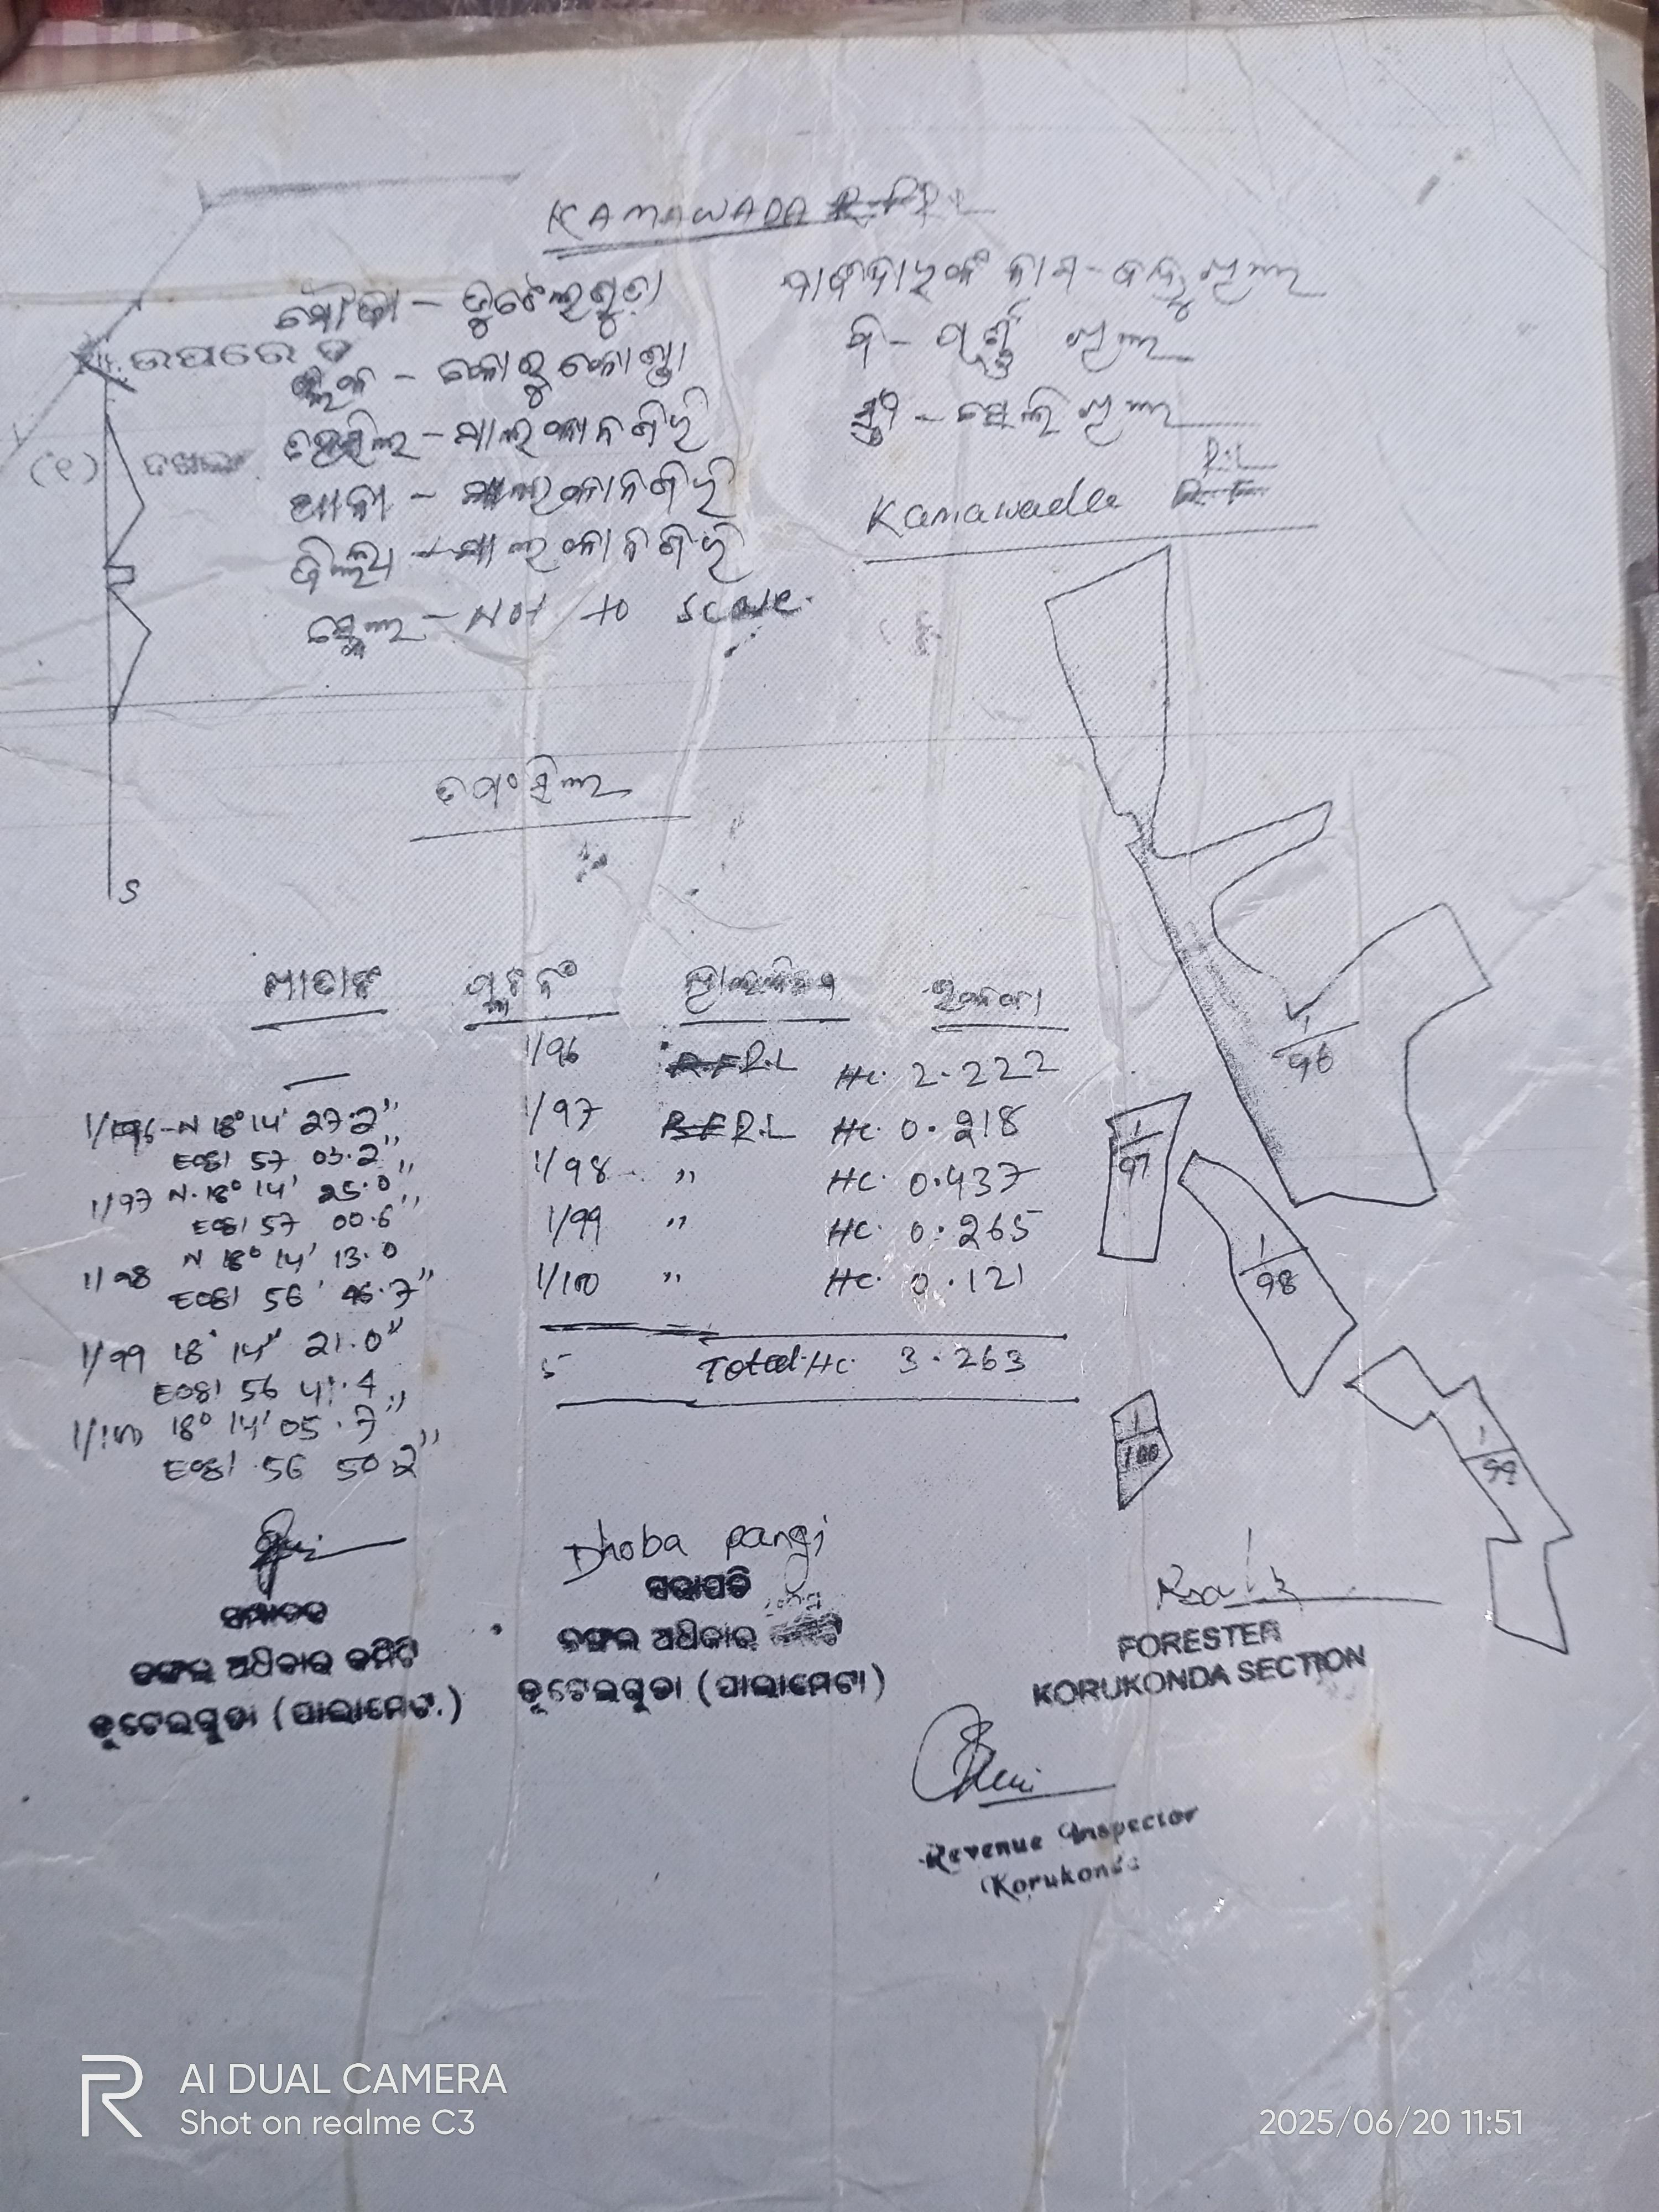 KAMAWADA R.F R.L
ମୌଜା - ଡୁଟେଲଗୁଡା
ଉପରେ ଡ
ବ୍ଲକ - କୋରୁକୋଣ୍ଡା
ତହସିଲ - ମାଲକାନଗିରି
(୧) ଦଖଲ
ଥାନା - ମାଲକାନଗିରି
ଜିଲ୍ଲା - ମାଲକାନଗିରି
ସ୍କେଲ - Not to scale.
ନାମ -
ପି -
ସ୍ତ୍ରୀ -
Kamawada R.F R.L
S
ତପସିଲ
ଖାତା ନଂ ପ୍ଲଟ ନଂ
1/96 R.F R.L Hc. 2.222
1/97 R.F R.L Hc. 0.218
1/98 " Hc. 0.437
1/99 " Hc. 0.265
1/100 " Hc. 0.121
5 Total Hc. 3.263
1/96 - N 18° 14' 27.2"
E081 57 03.2"
1/97 N. 18° 14' 25.0"
E081 57 00.6"
1/98 N 18° 14' 13.0
E081 56' 46.7"
1/99 18° 14" 21.0"
E081 56 41.4"
1/100 18° 14' 05.7"
E081 56 50.2"
1/96
1/97
1/98
1/99
1/100
Dhoba pangi
ସମ୍ପାଦକ
ଜଙ୍ଗଲ ଅଧିକାର କମିଟି
ଡୁଟେଲଗୁଡା (ପାଲାମେଟା)
ସଭାପତି
ଜଙ୍ଗଲ ଅଧିକାର କମିଟି
ଡୁଟେଲଗୁଡା (ପାଲାମେଟା)
FORESTER
KORUKONDA SECTION
Revenue Inspector
Korukonda
AI DUAL CAMERA
Shot on realme C3
2025/06/20 11:51